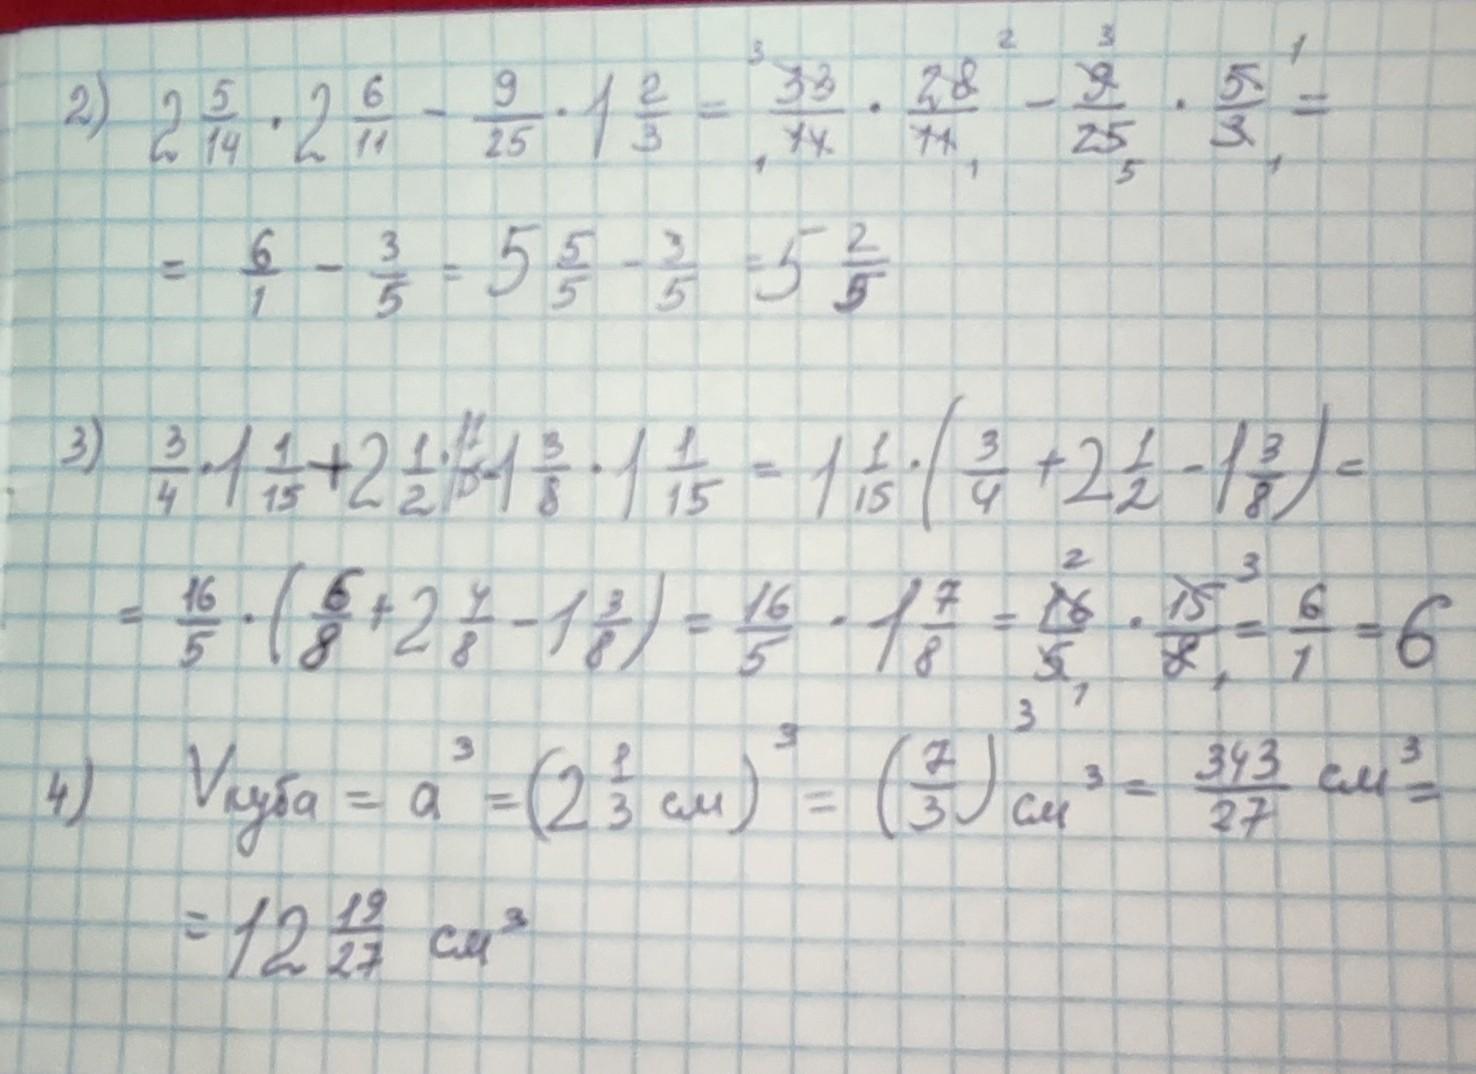 2) 2 5/14 · 2 6/11 - 9/25 · 1 2/3 = 33/14 · 28/11 - 9/25 · 5/3 =
= 6/1 - 3/5 = 5 5/5 - 3/5 = 5 2/5
3) 3/4 · 1 1/15 + 2 1/2 · - 1 3/8 · 1 1/15 = 1 1/15 · (3/4 + 2 1/2 - 1 3/8) =
= 16/5 · (6/8 + 2 4/8 - 1 3/8) = 16/5 · 1 7/8 = 16/5 · 15/8 = 6/1 = 6
4) Vкуба = a³ = (2 1/3 см)³ = (7/3)³ см³ = 343/27 см³ =
= 12 19/27 см³